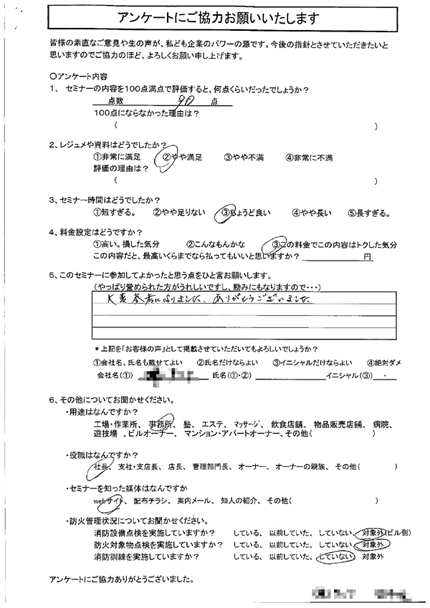 アンケートにご協力お願いいたします
皆様の素直なご意見や生の声が、私ども企業のパワーの源です。今後の指針とさせていただきたいと
思いますのでご協力のほど、よろしくお願い申し上げます。
〇アンケート内容
1、 セミナーの内容を100点満点で評価すると、何点くらいだったでしょうか?
点数 90 点
100点にならなかった理由は?
( )
2、レジュメや資料はどうでしたか?
①非常に満足 ②やや満足 ③やや不満 ④非常に不満
評価の理由は?
( )
3、セミナー時間はどうでしたか?
①短すぎる。 ②やや足りない ③ちょうど良い ④やや長い ⑤長すぎる。
4、料金設定はどうですか?
①高い。損した気分 ②こんなもんかな ③この料金でこの内容はトクした気分
この内容だと、最高いくらまでなら払ってもいいと思いますか? 円
5、このセミナーに参加してよかったと思う点をひと言お願いします。
(やっぱり誉められた方がうれしいですし、励みにもなりますので・・・)
大変参考になりました。ありがとうございました
*上記を「お客様の声」として掲載させていただいてもよろしいでしょうか?
①会社名、氏名も載せてよい ②氏名だけならよい ③イニシャルだけならよい ④絶対ダメ
会社名(①) 氏名(①・②) イニシャル(③)
6、その他についてお聞かせください。
・用途はなんですか?
工場・作業所、 事務所、 塾、 エステ、 マッサージ、 飲食店舗、 物品販売店舗、 病院、
遊技場 、ビルオーナー、 マンション・アパートオーナー、その他( )
・役職はなんですか?
社長、 支社・支店長、 店長、 管理部門長、 オーナー、 オーナーの親族、 その他( )
・セミナーを知った媒体はなんですか
webサイト、 配布チラシ、 案内メール、 知人の紹介、 その他( )
・防火管理状況についてお聞かせください。
消防設備点検を実施していますか? している、 以前していた、 していない、 対象外(ビル側)
防火対象物点検を実施していますか? している、 以前していた、 していない、 対象外
消防訓練を実施していますか? している、 以前していた、 していない、 対象外
アンケートにご協力ありがとうございました。